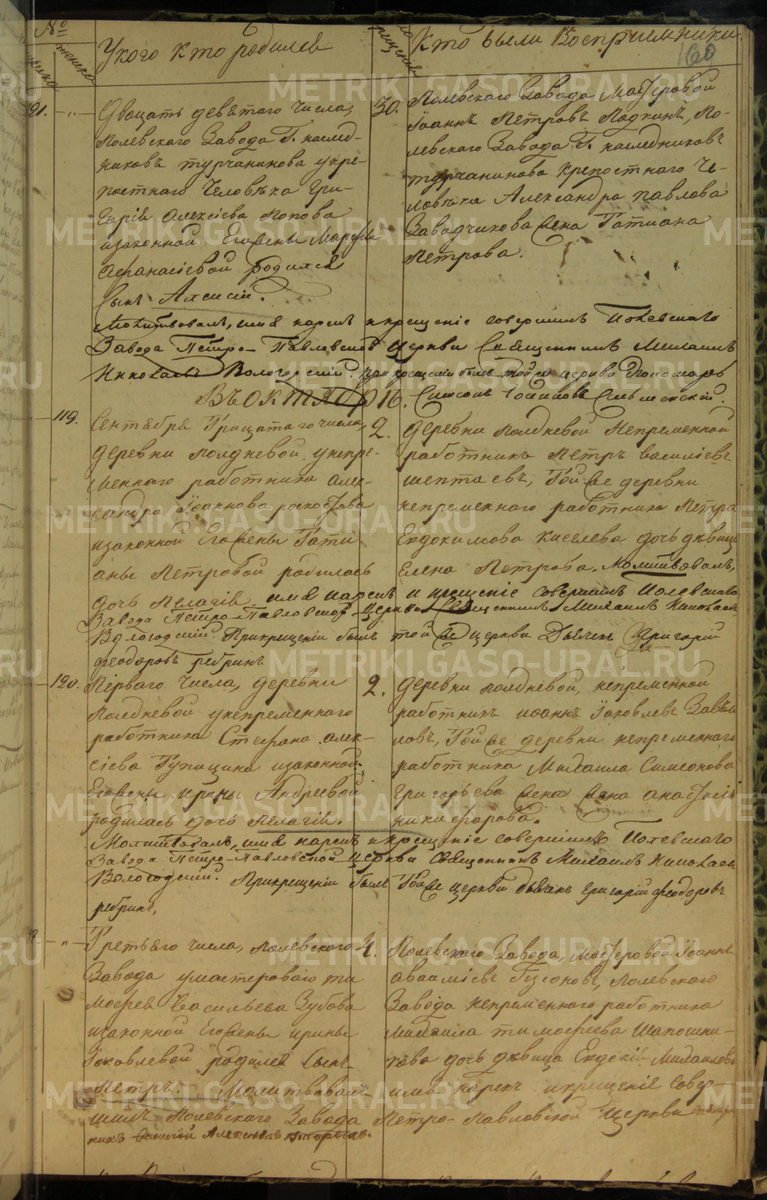 №
У кого кто родился
Кто были Восприемники
160
91.
Двацать девѣтаго числа,
Полевскаго Завода Г. наслед-
никовъ турчанинова укре-
постнаго Человѣка Гри-
горія Алексіева Попова
изаконной Его жены Марѳы
Афанасіевой родился
Сынъ Алексій.
30.
Полевскаго Завода Мастеровой
Іоаннъ Петровъ, По-
левскаго Завода Г. наследниковъ
турчанинова крепостнаго Че-
ловѣка Александра Павлова
Заводчикова жена Татиана
Петрова.
Молитвовалъ, имя нарекъ и крещеніе совершилъ Полевскаго
Завода Петро-Павловской Церкви Священникъ Михаилъ
Николаевъ Вологодскій. При крещеніи былъ той же церкви Пономарь
Симеонъ
Въ ОКТЯБРѢ.
119.
Сентября Трицатаго числа,
деревни Полдневой унепре-
меннаго работника Алек-
сандра Іоаннова
изаконной Его жены Тати-
аны Петровой родилась
дочь Пелагія
2.
деревни Полдневой Непременной
работникъ Петръ Василіевъ
Шептаевъ, Той же деревни
непременного работника Петра
Евдокимова Киселева дочь дѣвица
Елена Петрова. Молитвовалъ,
имя нарекъ и крещеніе совершилъ Полевскаго
Завода Петро-Павловской Церкви Священникъ Михаилъ Николаевъ
Вологодскій При крещеніи былъ той же церкви Дьячекъ Григорій
Феодоровъ Ребринъ
120.
Перваго Числа, деревни
Полдневой унепременнаго
работника Стефана Алек-
сіева Тупицина изаконной
Его жены Ирины Андреевой
родилась дочь Пелагія.
2.
деревни Полдневой, непременной
работникъ Іоаннъ Іаковлевъ
Той же деревни непременнаго
работника Михаила Симеонова
Григорьева жена Анастасія
Никифорова.
Молитвовалъ, имя нарекъ и крещеніе совершилъ Полевскаго
Завода Петро-Павловской Церкви Священникъ Михаилъ Николаевъ
Вологодскій. При крещеніи былъ Той же церкви дьячекъ Григорій Феодоровъ
Ребринъ,
Третьяго числа, Полевскаго
Завода умастероваго Ти-
мофея Васильева Зубова
изаконной Его жены Ирины
Іаковлевой родился Сынъ
Петръ. Молитвовалъ
4.
Полевскаго Завода, Мастеровой Іоаннъ
Полевскаго
Завода непременнаго работника
Михаила Тимофеева Шапошни-
кова дочь дѣвица Евдокія Михаилова
имя нарекъ и крещеніе совер-
шилъ Полевскаго Завода Петро-Павловской Церкви
METRIKI.GASO-URAL.RU